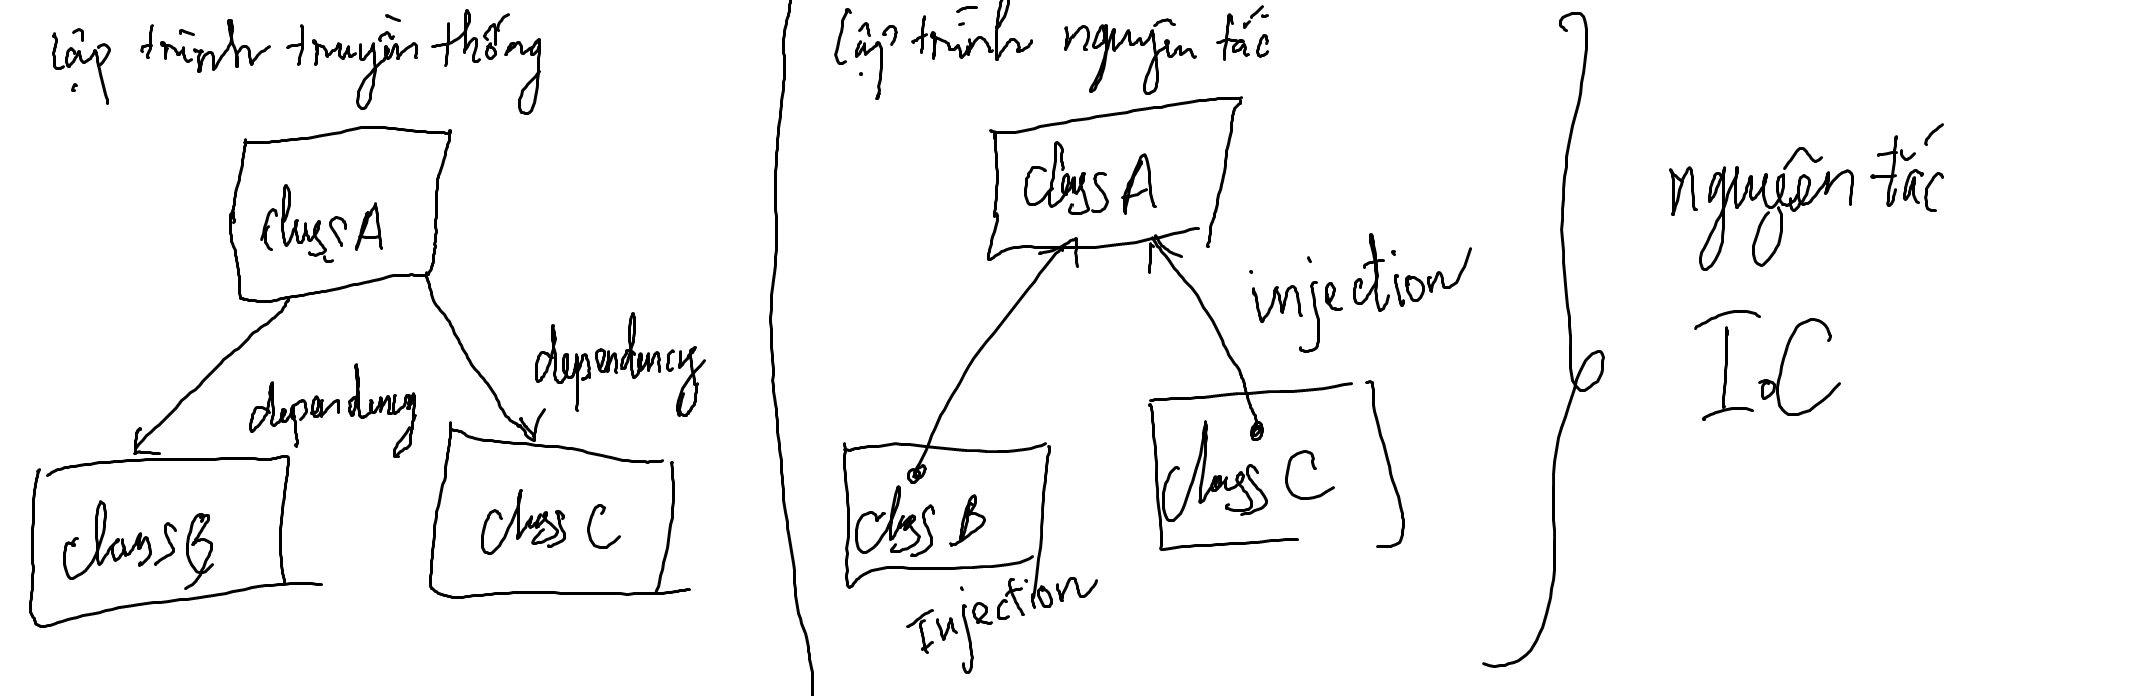 lập trình truyền thống
class A
dependency
dependency
class B
class C
lập trình nguyên tắc
class A
injection
class B
class C
Injection
nguyên tắc
IoC